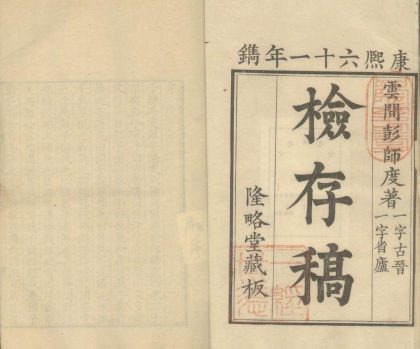 康熙六十一年鐫
雲間彭師度著
一字古晉
一字省廬
檢存稿
隆略堂藏板